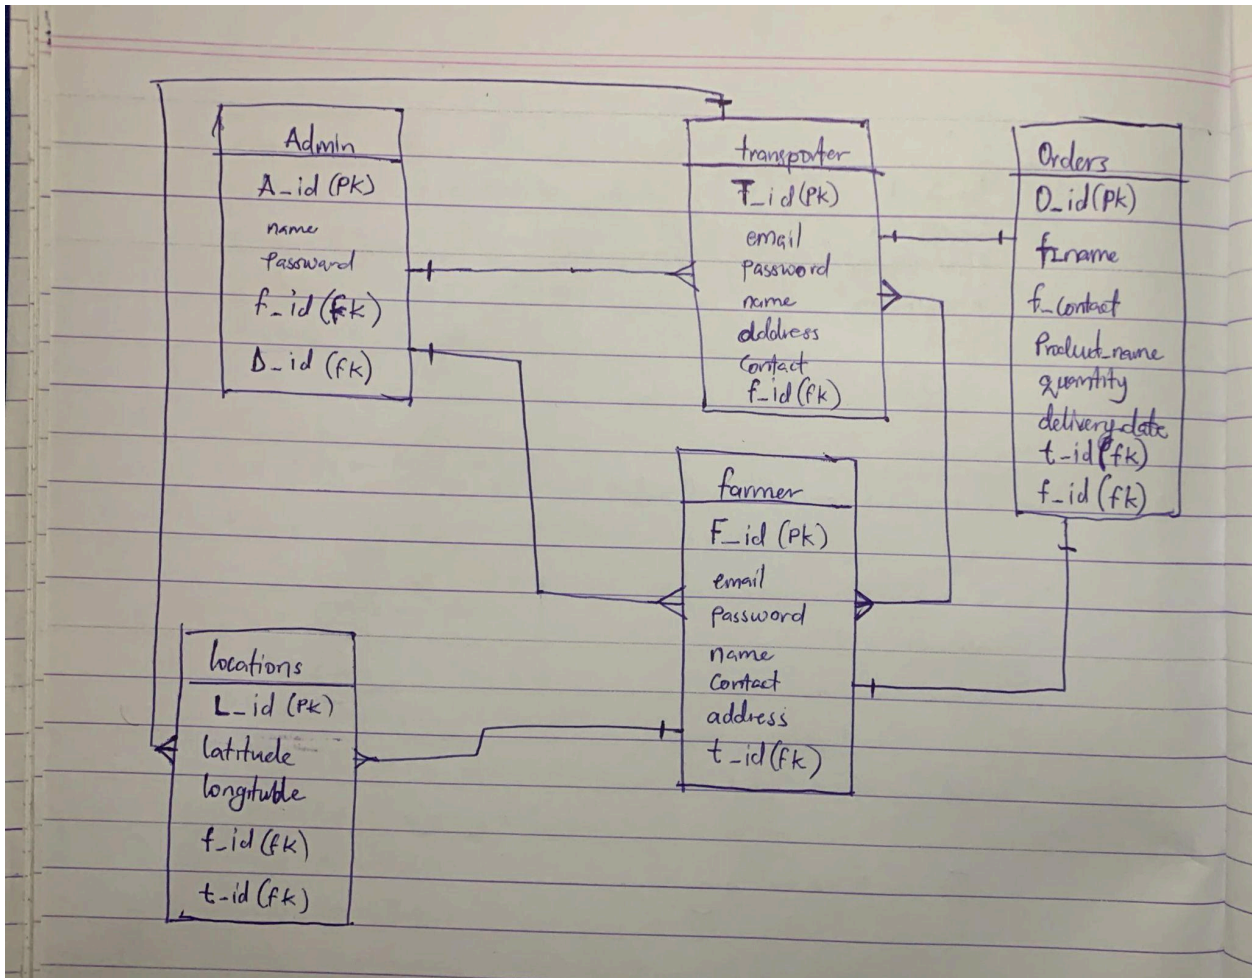 Admin
A_id (PK)
name
Password
f_id (fk)
D_id (fk)
transporter
T_id (PK)
email
password
name
address
Contact
f_id (fk)
Orders
O_id (PK)
f_name
f_contact
Product_name
quantity
delivery_date
t_id (fk)
f_id (fk)
farmer
F_id (PK)
email
Password
name
Contact
address
t_id (fk)
locations
L_id (PK)
latitude
longitude
f_id (fk)
t_id (fk)